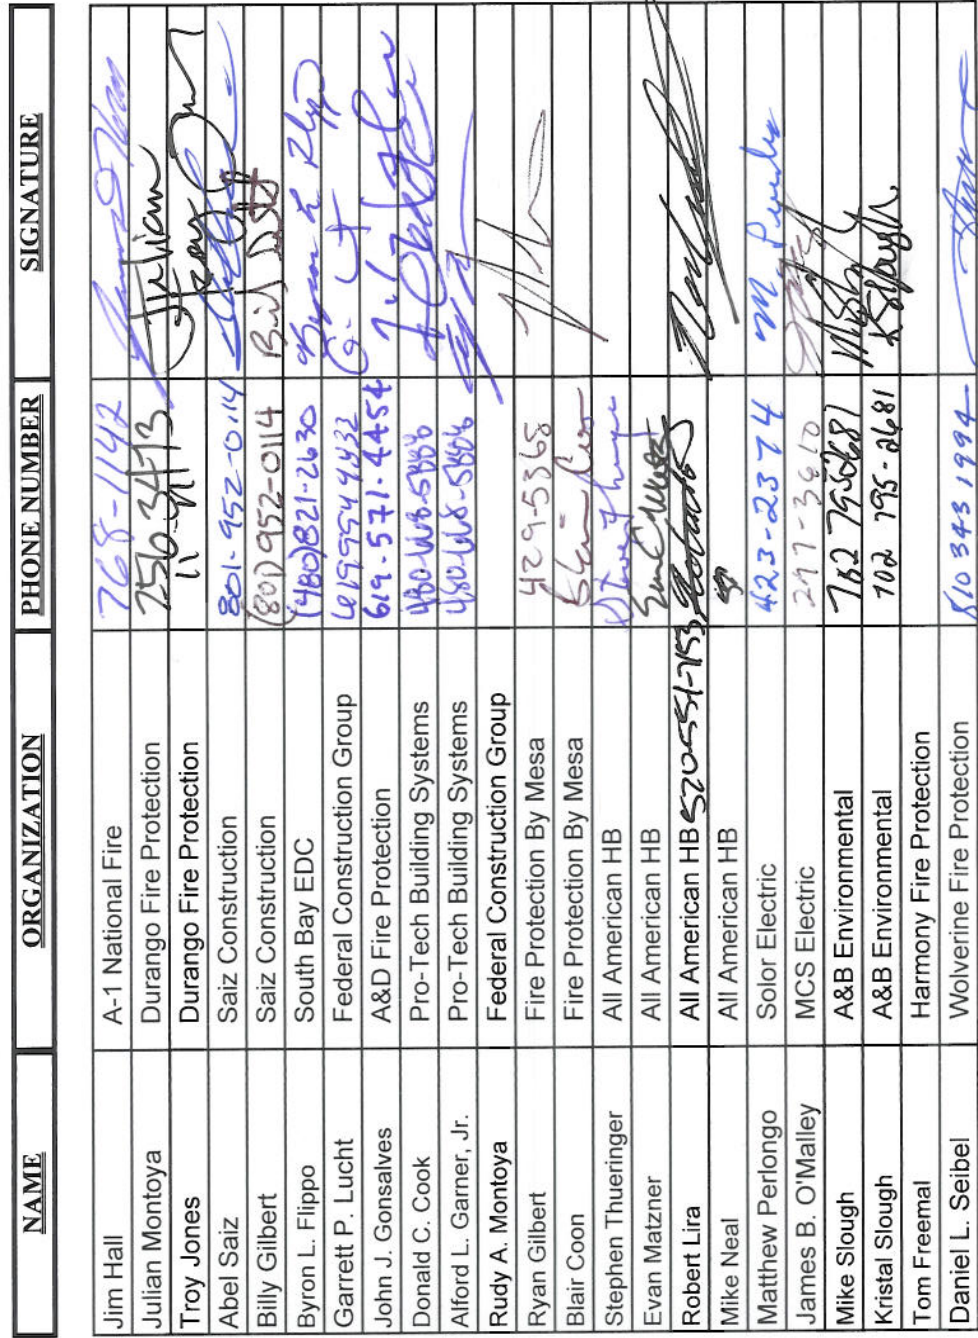 NAME ORGANIZATION PHONE NUMBER SIGNATURE
Jim Hall A-1 National Fire 768-1142
Julian Montoya Durango Fire Protection 756-3413 Julian
Troy Jones Durango Fire Protection
Abel Saiz Saiz Construction 801-952-0114
Billy Gilbert Saiz Construction (801) 952-0114
Byron L. Flippo South Bay EDC (480) 821-2630
Garrett P. Lucht Federal Construction Group 6199944432
John J. Gonsalves A&D Fire Protection 619-571-4454
Donald C. Cook Pro-Tech Building Systems
Alford L. Garner, Jr. Pro-Tech Building Systems
Rudy A. Montoya Federal Construction Group
Ryan Gilbert Fire Protection By Mesa 429-5368
Blair Coon Fire Protection By Mesa
Stephen Thueringer All American HB
Evan Matzner All American HB
Robert Lira All American HB 520-551-7153
Mike Neal All American HB
Matthew Perlongo Solor Electric 423-2374 M. Perlo
James B. O'Malley MCS Electric 297-3610
Mike Slough A&B Environmental 702 7952681
Kristal Slough A&B Environmental 702 795-2681 KSlough
Tom Freemal Harmony Fire Protection
Daniel L. Seibel Wolverine Fire Protection 810 343 1994